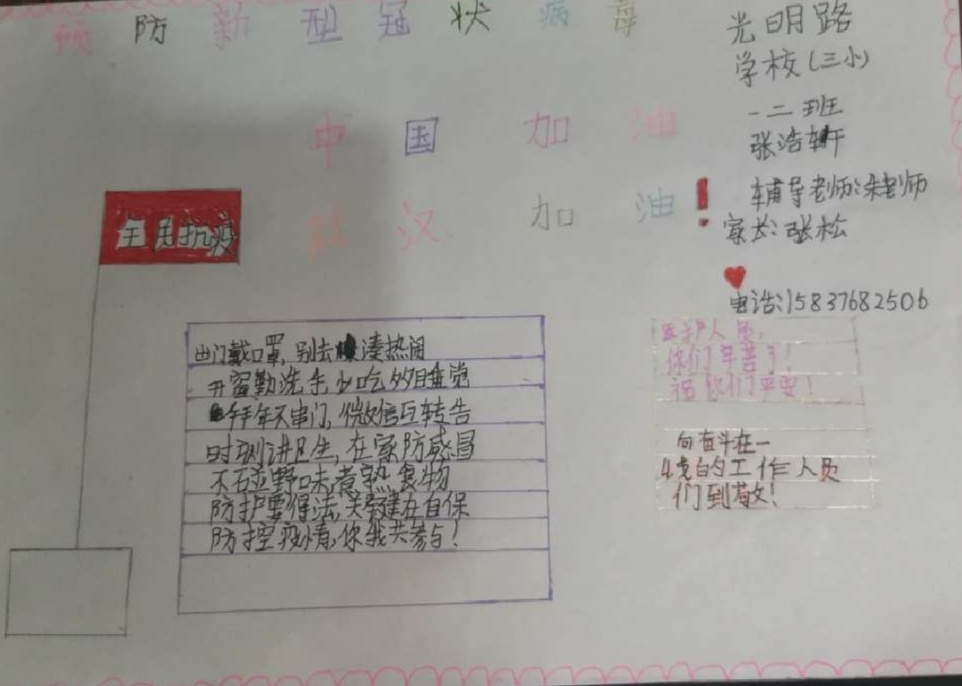 预防新型冠状病毒
光明路
学校(三小)
一二班
张浩轩
中国加油
辅导老师:朱老师
武汉加油!
家长:张松
全民抗疫
电话:15837682506
出门戴口罩,别去凑热闹
开窗勤洗手,少吃多睡觉
拜年不串门,微信互转告
时刻讲卫生,在家防感冒
不碰野味,煮熟食物
防护要得法,关键在自保
防控疫情,你我共参与!
医护人员,
你们辛苦了!
祝你们平安!
向奋斗在一
线的工作人员
们到敬!